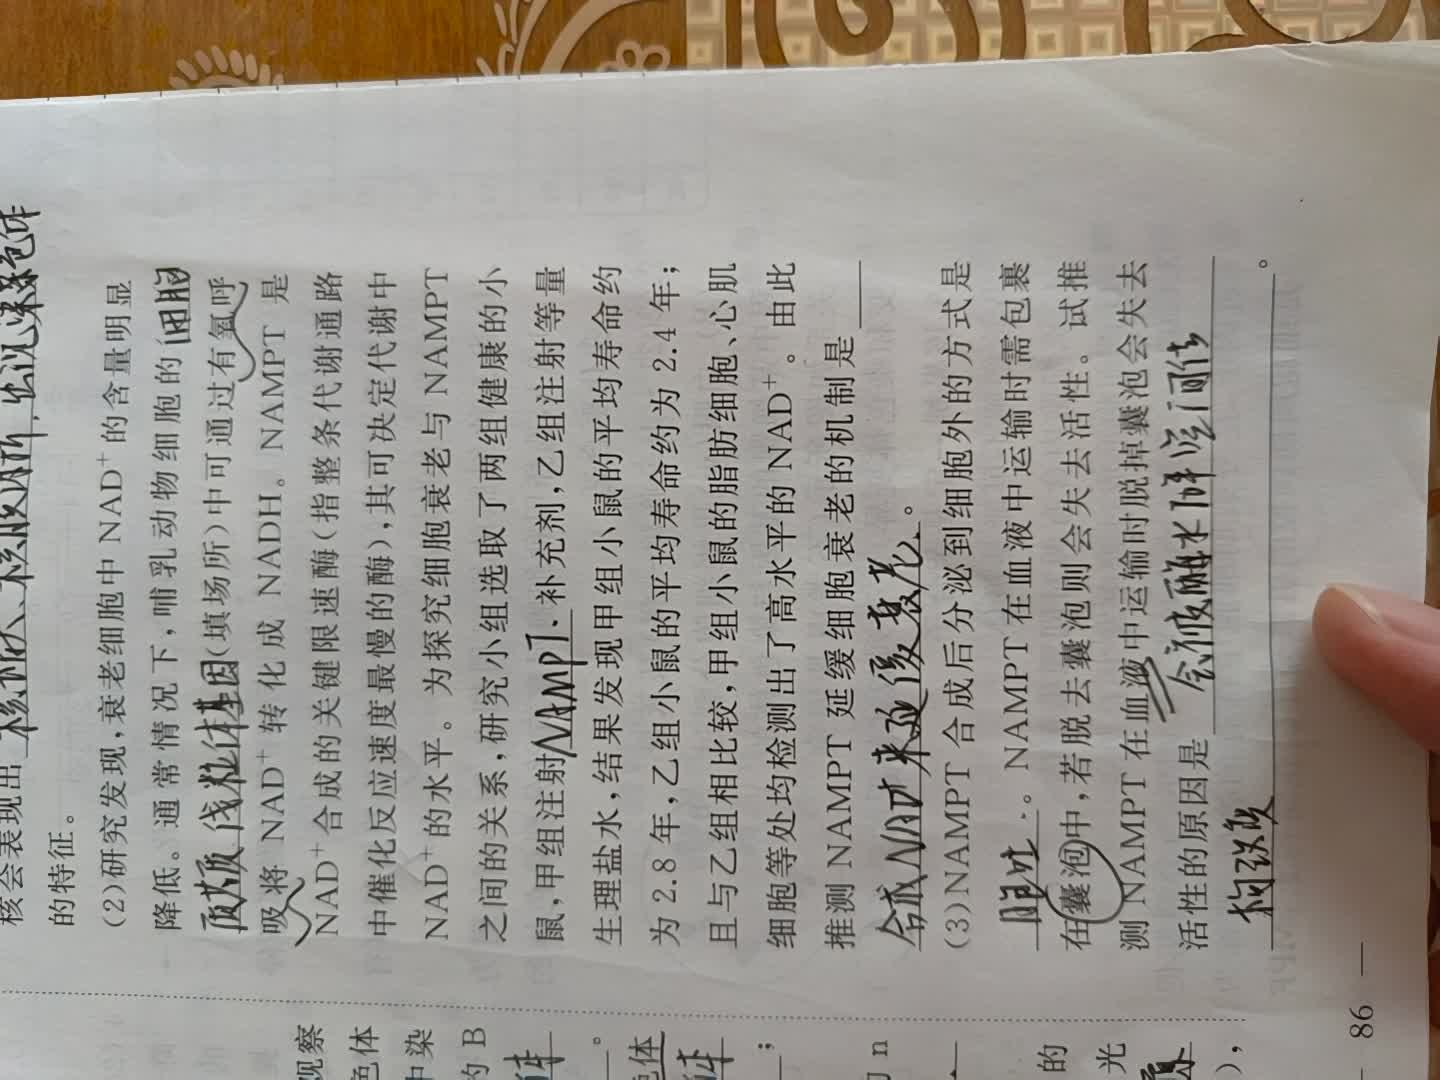 核会表现出 核增大、核膜内折，出现染色体
的特征。
(2)研究发现,衰老细胞中 NAD⁺的含量明显
降低。通常情况下,哺乳动物细胞的 细胞
质基质、线粒体基质(填场所)中可通过有氧呼
吸将 NAD⁺ 转化成 NADH。NAMPT 是
NAD⁺合成的关键限速酶(指整条代谢通路
中催化反应速度最慢的酶),其可决定代谢中
NAD⁺的水平。为探究细胞衰老与 NAMPT
之间的关系,研究小组选取了两组健康的小
鼠,甲组注射 NAMPT 补充剂,乙组注射等量
生理盐水,结果发现甲组小鼠的平均寿命约
为 2.8 年,乙组小鼠的平均寿命约为 2.4 年;
且与乙组相比较,甲组小鼠的脂肪细胞、心肌
细胞等处均检测出了高水平的 NAD⁺。由此
推测 NAMPT 延缓细胞衰老的机制是
合成NAD⁺来延缓衰老。
(3)NAMPT 合成后分泌到细胞外的方式是
胞吐。NAMPT 在血液中运输时需包裹
在囊泡中,若脱去囊泡则会失去活性。试推
测 NAMPT 在血液中运输时脱掉囊泡会失去
活性的原因是 会被酶水解,空间结
构改变。
— 86 —
观察
色体
中染
的 B
体
。
色体
体
;
n
的
光
),